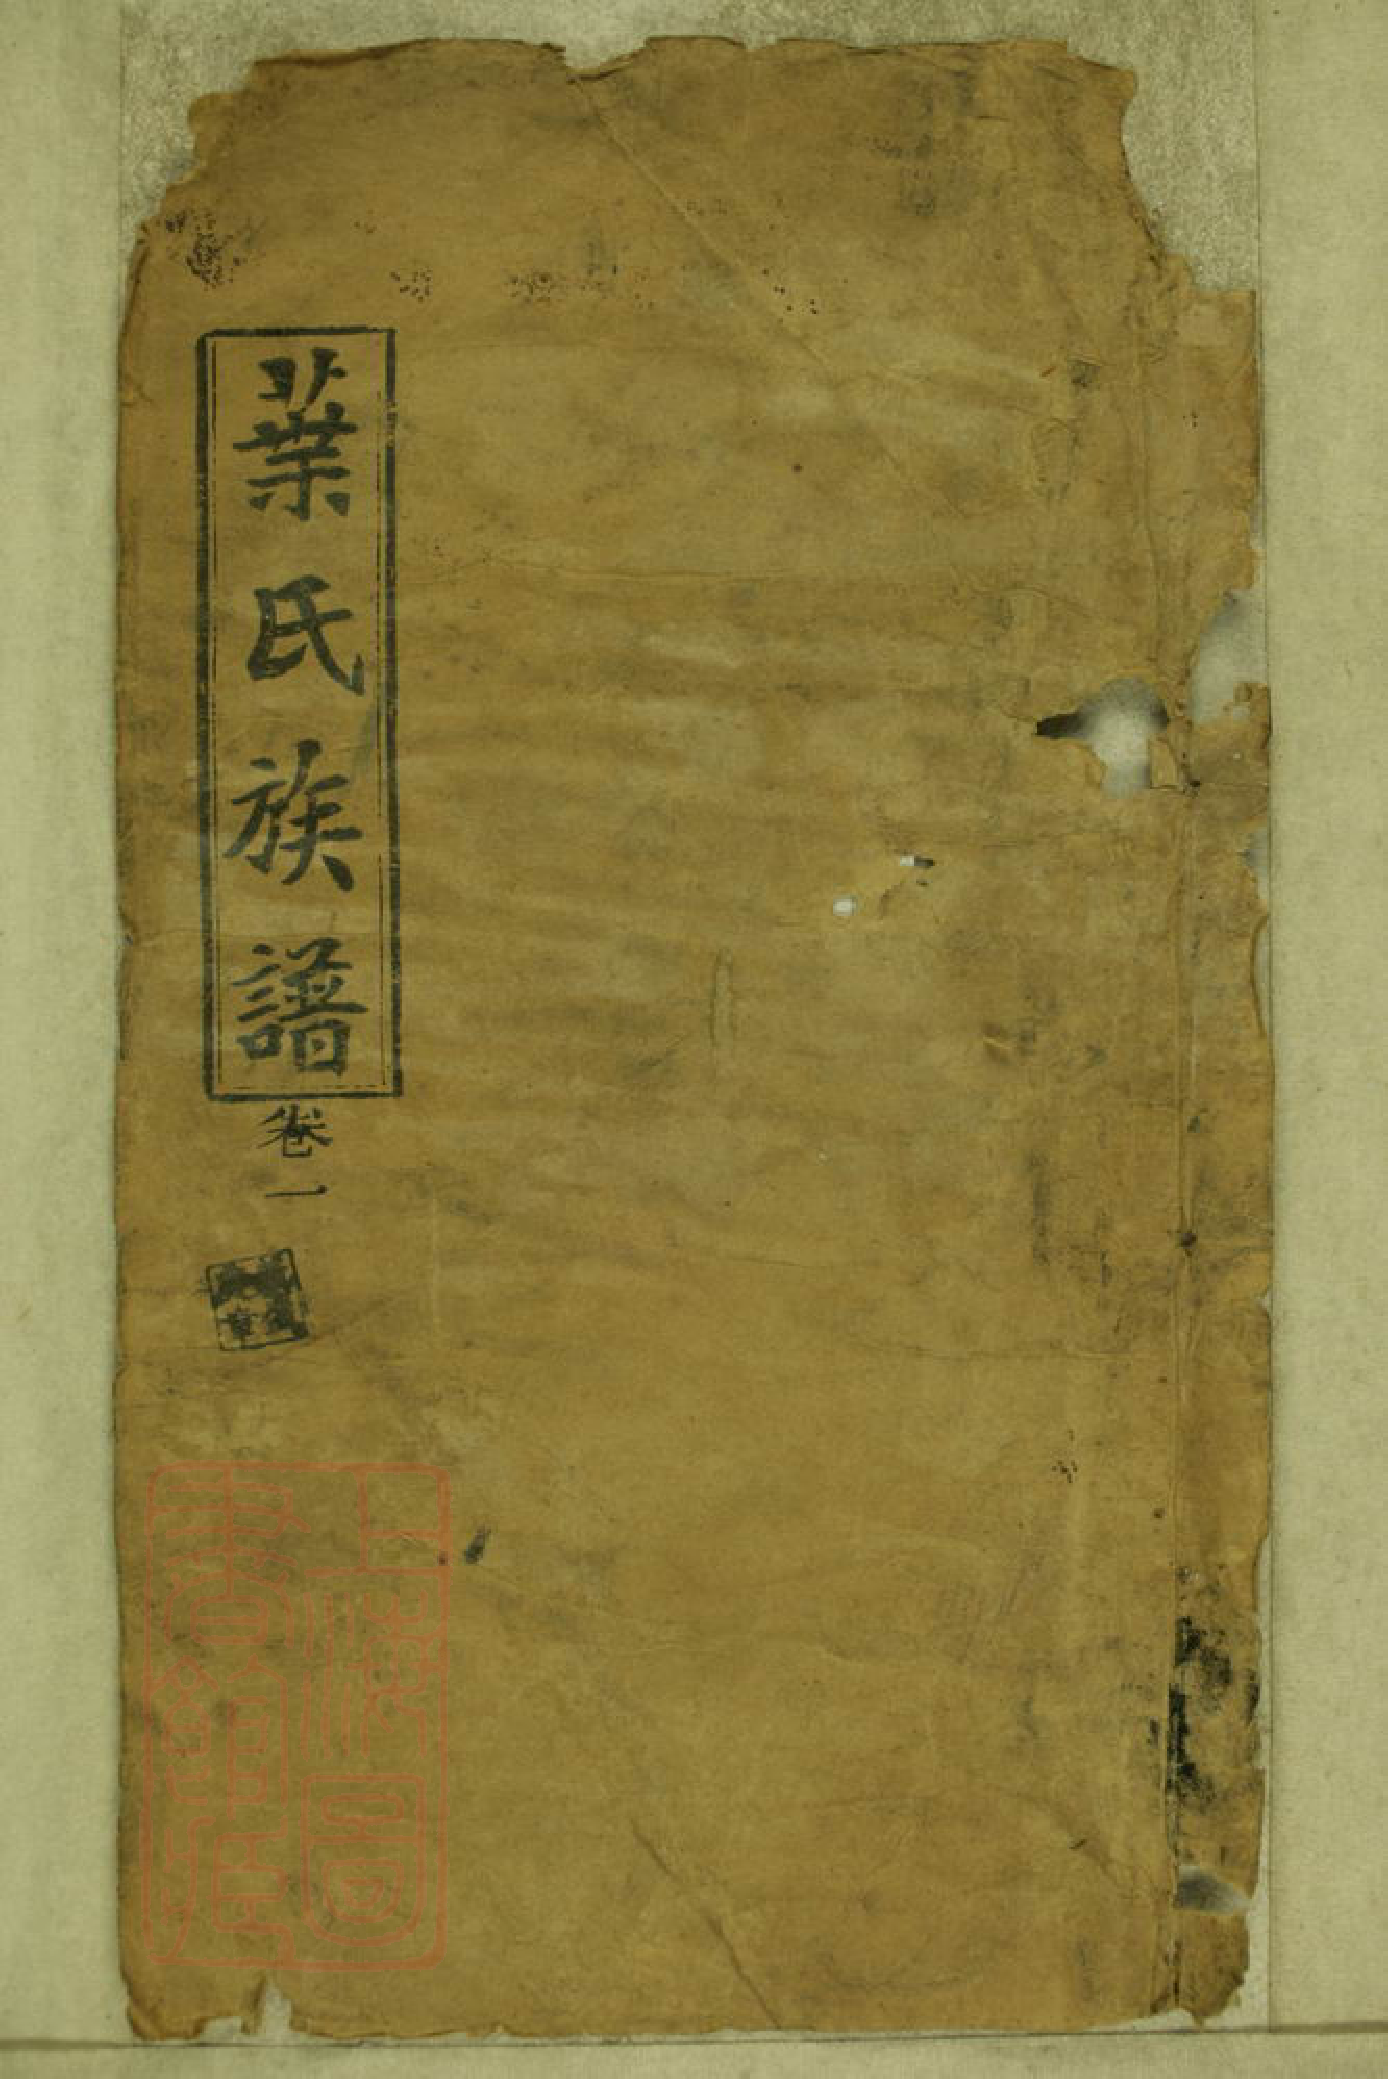 葉氏族譜
卷一
上海圖
書館藏